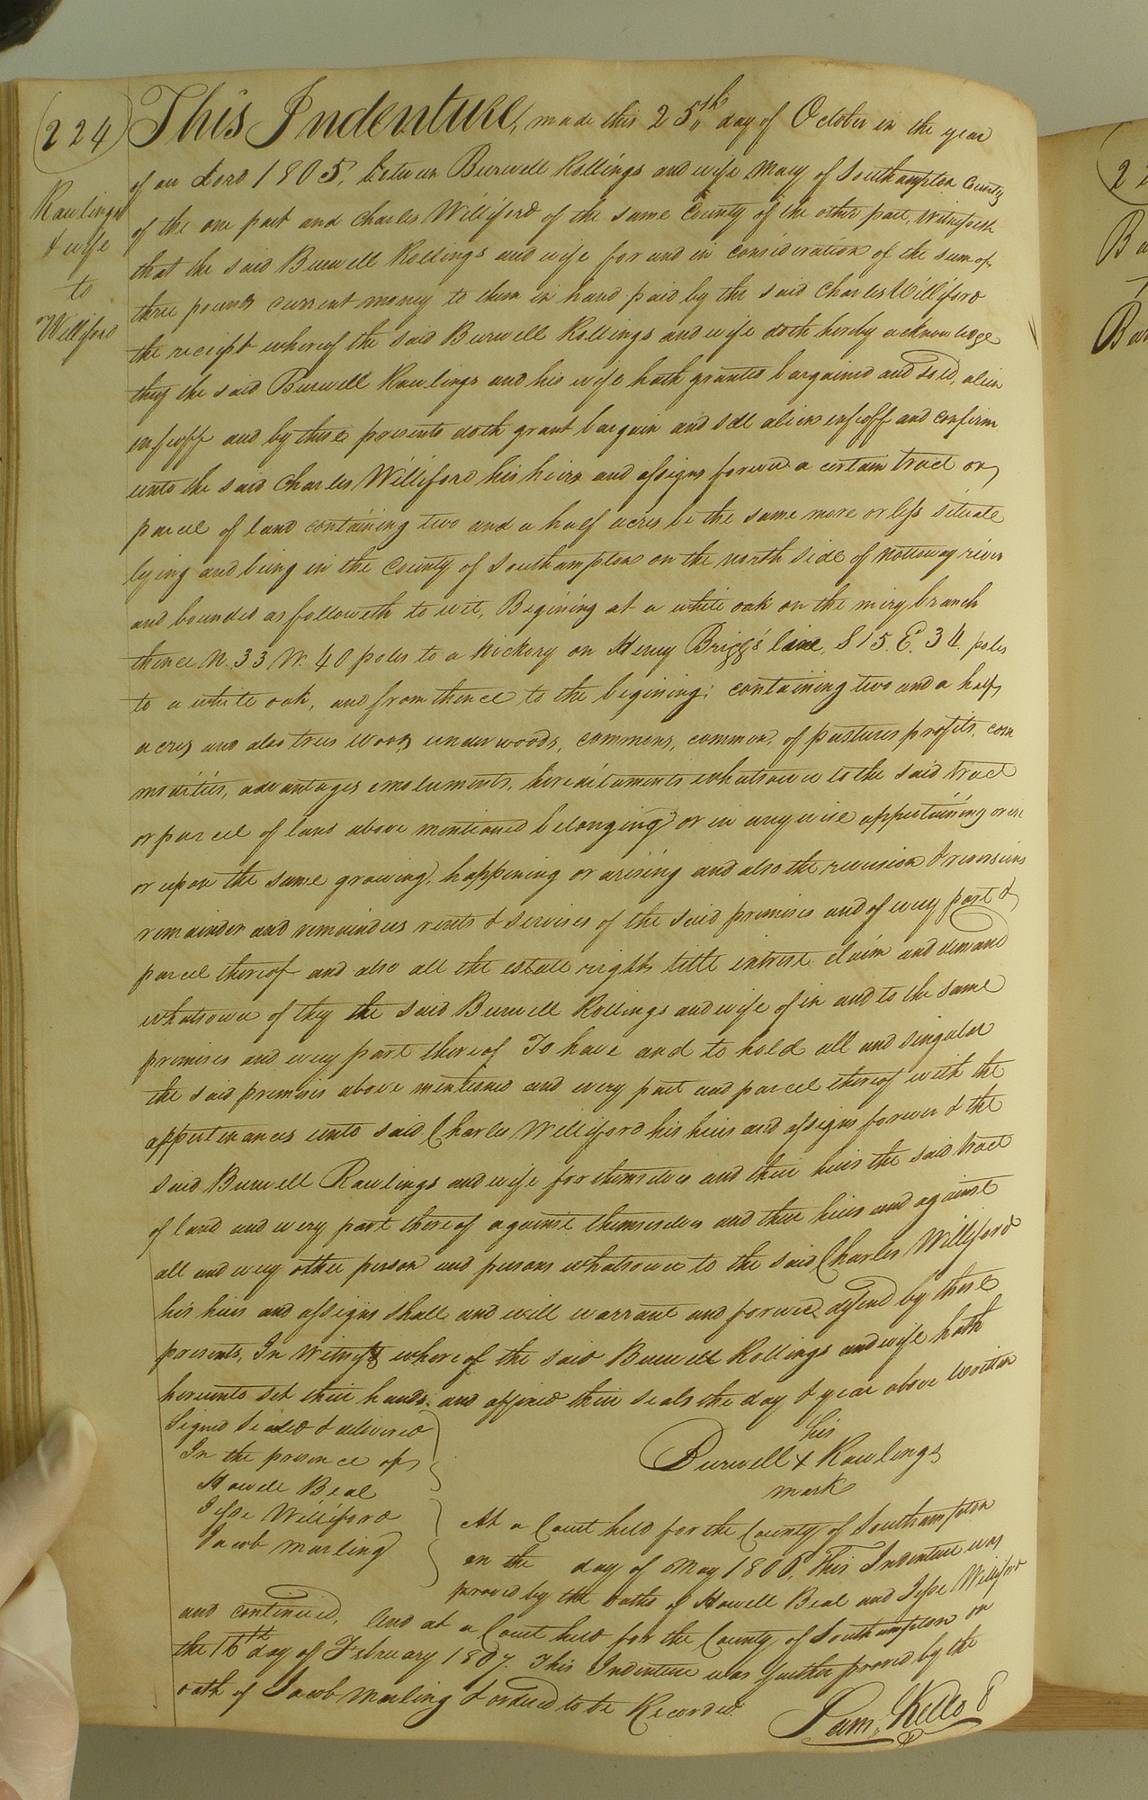 (224)
Rawlings
& wife
to
Williford
This Indenture, made this 25th day of October in the year
of our Lord 1805, between Burwell Rollings and wife Mary of Southampton County
of the one part and Charles Williford of the same County of the other part, Witnesseth
that the said Burwell Rollings and wife for and in consideration of the sum of
three pounds current money to them in hand paid by the said Charles Williford
the receipt whereof the said Burwell Rollings and wife doth hereby acknowledge
they the said Burwell Rawlings and his wife hath granted bargained and sold, alien
enfeoff and by these presents doth grant bargain and sell alien enfeoff and confirm
unto the said Charles Williford his heirs and assigns forever a certain tract or
parcel of land containing two and a half acres be the same more or less situate
lying and being in the County of Southampton on the north side of Nottoway river
and bounded as followeth to wit, Begining at a white oak on the miry branch
thence N. 33 W. 40 poles to a hickory on Henry Briggs' line, S 15. E. 34 poles
to a white oak, and from thence to the begining; containing two and a half
acres and also trees woods underwoods, commons, common, of pastures profits, com
modities, advantages emoluments, hereditaments whatsoever to the said tract
or parcel of land above mentioned belonging or in any wise appertaining or in
or upon the same growing, happening or arising and also the revision & reversions
remainder and remainders rents & servises of the said premises and of every part &
parcel thereof and also all the estate right title intrest claim and demand
whatsoever of they the said Burwell Rollings and wife of in and to the same
premises and every part thereof To have and to hold all and singular
the said premises above mentioned and every part and parcel thereof with the
appertinances unto said Charles Williford his heirs and assigns forever & the
said Burwell Rawlings and wife for themselves and their heirs the said tract
of land and every part thereof against themselves and their heirs and against
all and every other person and persons whatsoever to the said Charles Williford
his heirs and assigns shall and will warrant and forever defend by these
presents, In Witness whereof the said Burwell Rollings and wife hath
hereunto set their hands, and affixed their seals the day & year above written
Signed Sealed & delivered
In the presence of
Howell Beal
Jesse Williford
Jacob Marling
his
Burwell + Rawlings
mark
At a Court held for the County of Southampton
on the day of May 1806, This Indenture was
proved by the oaths of Howell Beal and Jesse Williford
and continued, And at a Court held for the County of Southampton on
the 16th day of February 1807. This Indenture was further proved by the
oath of Jacob Marling & ordered to be Recorded
Sam. Kello